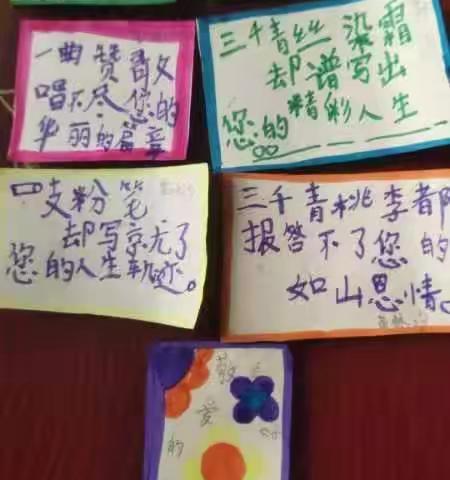 一曲赞歌
唱不尽您的
华丽的篇章
三千青丝 染霜
却谱写出
您的精彩人生
一支粉笔
却写就了
您的人生轨迹。
三千青桃李都
报答不了您的
如山恩情。
敬
爱
的